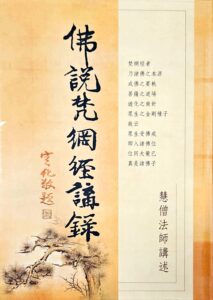 佛說梵網經講錄
宣化敬題
梵網經者
乃諸佛之本源
成佛之
菩薩之道場
化之南針
眾生之金剛種子
故云
眾生受佛戒
即入諸佛位
位同大覺已
真是諸佛子
慧僧法師講述